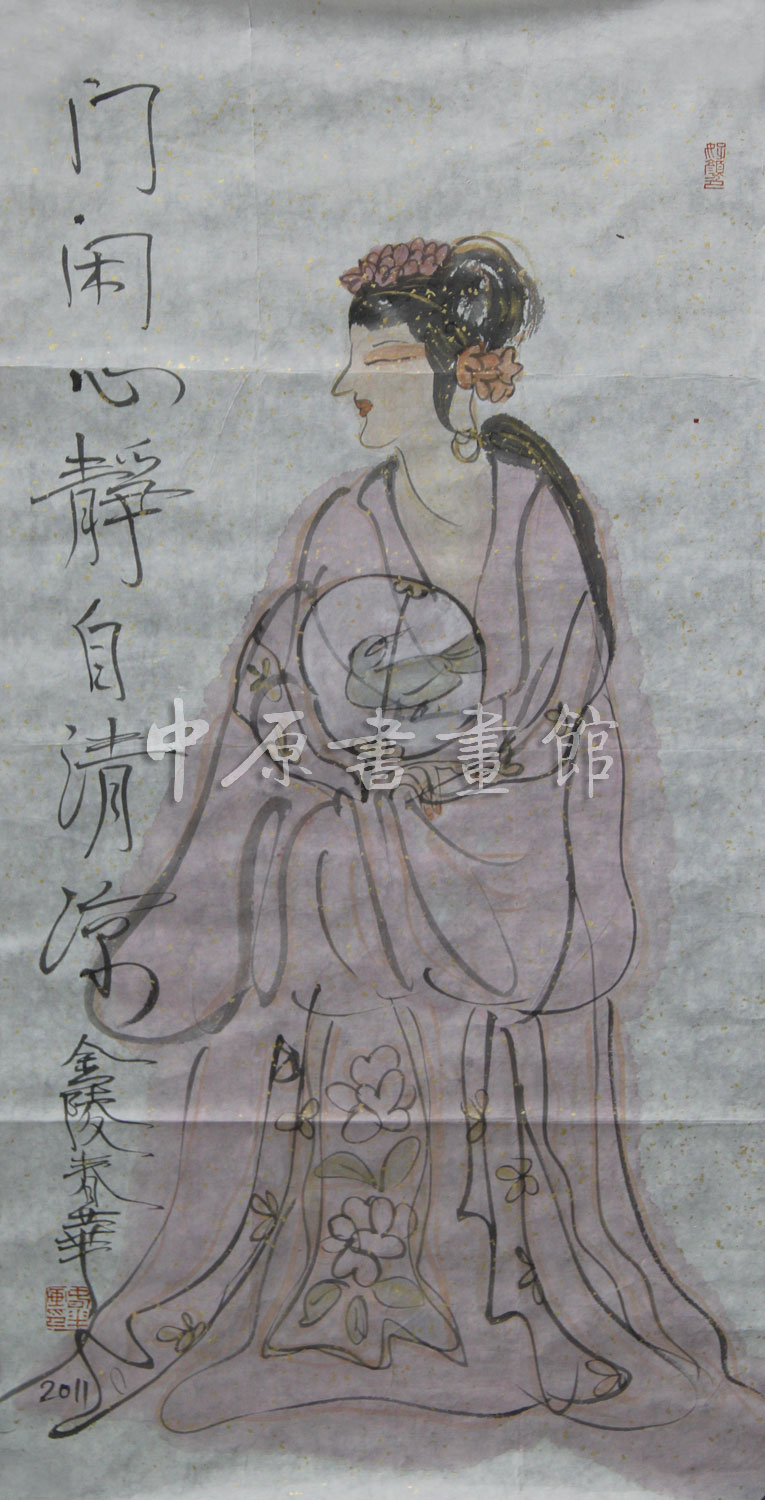 门闲心静自清凉
金陵春華
2011
中原書畫館